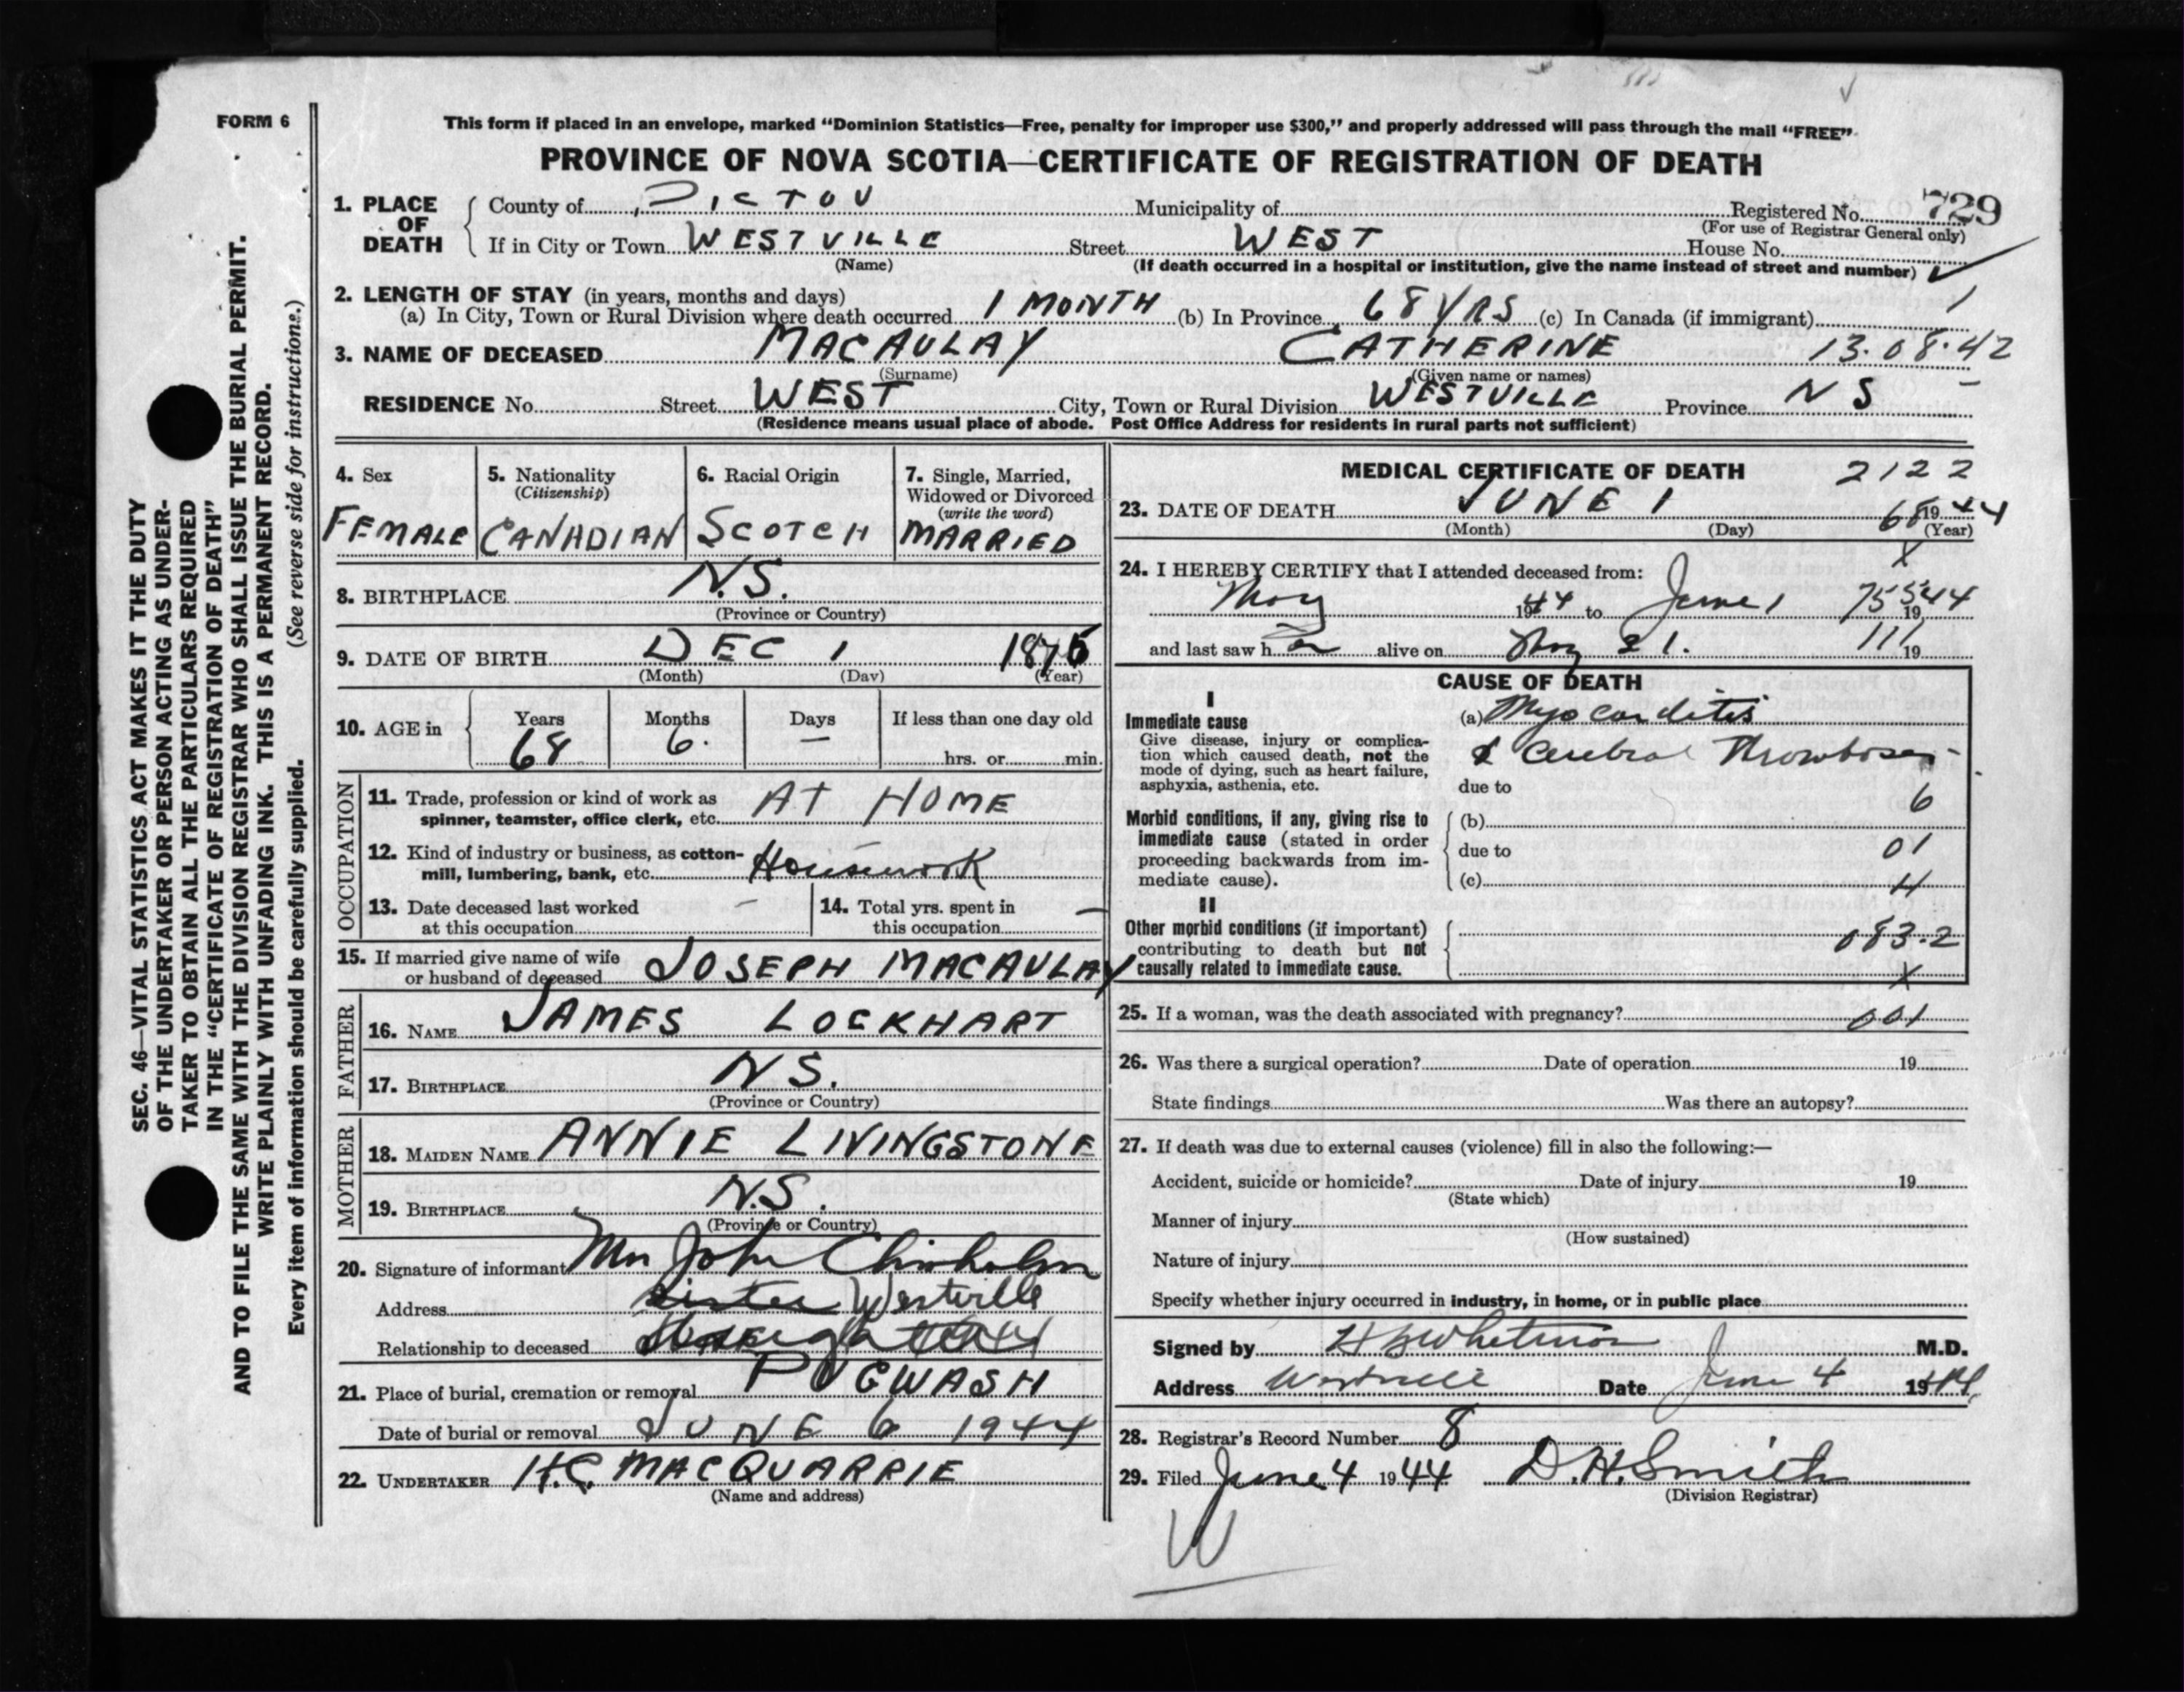 FORM 6
This form if placed in an envelope, marked “Dominion Statistics—Free, penalty for improper use $300,” and properly addressed will pass through the mail “FREE”
PROVINCE OF NOVA SCOTIA—CERTIFICATE OF REGISTRATION OF DEATH
1. PLACE OF DEATH
County of PICTOU Municipality of Registered No. 729
(For use of Registrar General only)
If in City or Town WESTVILLE Street WEST House No.
(Name) (If death occurred in a hospital or institution, give the name instead of street and number)
2. LENGTH OF STAY (in years, months and days)
(a) In City, Town or Rural Division where death occurred 1 MONTH (b) In Province 68 YRS (c) In Canada (if immigrant)
3. NAME OF DECEASED MACAULAY CATHERINE 13.08.42
(Surname) (Given name or names)
RESIDENCE No. Street WEST City, Town or Rural Division WESTVILLE Province N S
(Residence means usual place of abode. Post Office Address for residents in rural parts not sufficient)
4. Sex
FEMALE
5. Nationality
(Citizenship)
CANADIAN
6. Racial Origin
SCOTCH
7. Single, Married,
Widowed or Divorced
(write the word)
MARRIED
8. BIRTHPLACE N.S.
(Province or Country)
9. DATE OF BIRTH DEC 1 1875
(Month) (Day) (Year)
10. AGE in Years Months Days If less than one day old
68 6. — hrs. or min.
OCCUPATION
11. Trade, profession or kind of work as
spinner, teamster, office clerk, etc. AT HOME
12. Kind of industry or business, as cotton-
mill, lumbering, bank, etc. Housework
13. Date deceased last worked
at this occupation —
14. Total yrs. spent in
this occupation —
15. If married give name of wife
or husband of deceased JOSEPH MACAULAY
FATHER
16. NAME JAMES LOCKHART
17. BIRTHPLACE N S.
(Province or Country)
MOTHER
18. MAIDEN NAME ANNIE LIVINGSTONE
19. BIRTHPLACE N.S.
(Province or Country)
20. Signature of informant Mrs John Chisholm
Address Sister Westville
Relationship to deceased
21. Place of burial, cremation or removal PUGWASH
Date of burial or removal JUNE 6 1944
22. UNDERTAKER H.C. MACQUARRIE
(Name and address)
MEDICAL CERTIFICATE OF DEATH 2122
23. DATE OF DEATH JUNE 1 68 1944
(Month) (Day) (Year)
X
24. I HEREBY CERTIFY that I attended deceased from:
May 1944 to June 1 755 1944
and last saw her alive on May 21. 111 19
CAUSE OF DEATH
I
Immediate cause
Give disease, injury or complica-
tion which caused death, not the
mode of dying, such as heart failure,
asphyxia, asthenia, etc.
(a) Myocarditis
& Cerebral Thrombosis
due to
6
Morbid conditions, if any, giving rise to
immediate cause (stated in order
proceeding backwards from im-
mediate cause).
(b)
due to 01
(c) 4
II
Other morbid conditions (if important)
contributing to death but not
causally related to immediate cause.
083.2
X
25. If a woman, was the death associated with pregnancy? 001
26. Was there a surgical operation? Date of operation 19
State findings Was there an autopsy?
27. If death was due to external causes (violence) fill in also the following:—
Accident, suicide or homicide? Date of injury 19
(State which)
Manner of injury
(How sustained)
Nature of injury
Specify whether injury occurred in industry, in home, or in public place
Signed by M.D.
Address Westville Date June 4 1944
28. Registrar's Record Number 8
29. Filed June 4 1944 D.H. Smith
(Division Registrar)
W
SEC. 46—VITAL STATISTICS ACT MAKES IT THE DUTY
OF THE UNDERTAKER OR PERSON ACTING AS UNDER-
TAKER TO OBTAIN ALL THE PARTICULARS REQUIRED
IN THE “CERTIFICATE OF REGISTRATION OF DEATH”
AND TO FILE THE SAME WITH THE DIVISION REGISTRAR WHO SHALL ISSUE THE BURIAL PERMIT.
WRITE PLAINLY WITH UNFADING INK. THIS IS A PERMANENT RECORD.
Every item of information should be carefully supplied. (See reverse side for instructions.)